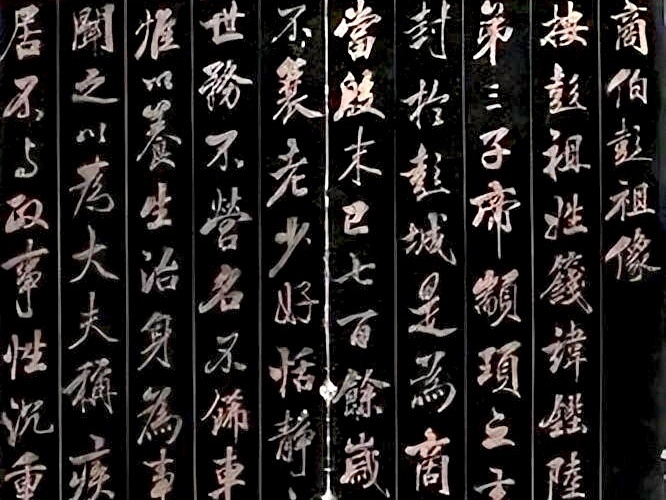 商伯彭祖像
按彭祖姓籛諱鏗陸
第三子帝顓頊之玄
封於彭城是為商
當殷末已七百餘歲
不衰老少好恬靜
世務不營名不飾車
惟以養生治身為事
聞之以為大夫稱疾
居不与政事性沉重